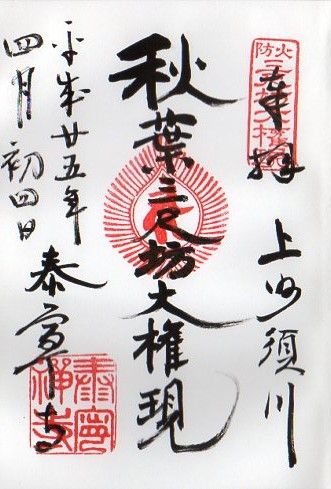 奉拝
上州須川
火防
秋葉三尺坊大権現
平成廿五年
四月初四日
泰寧寺
泰寧禅寺